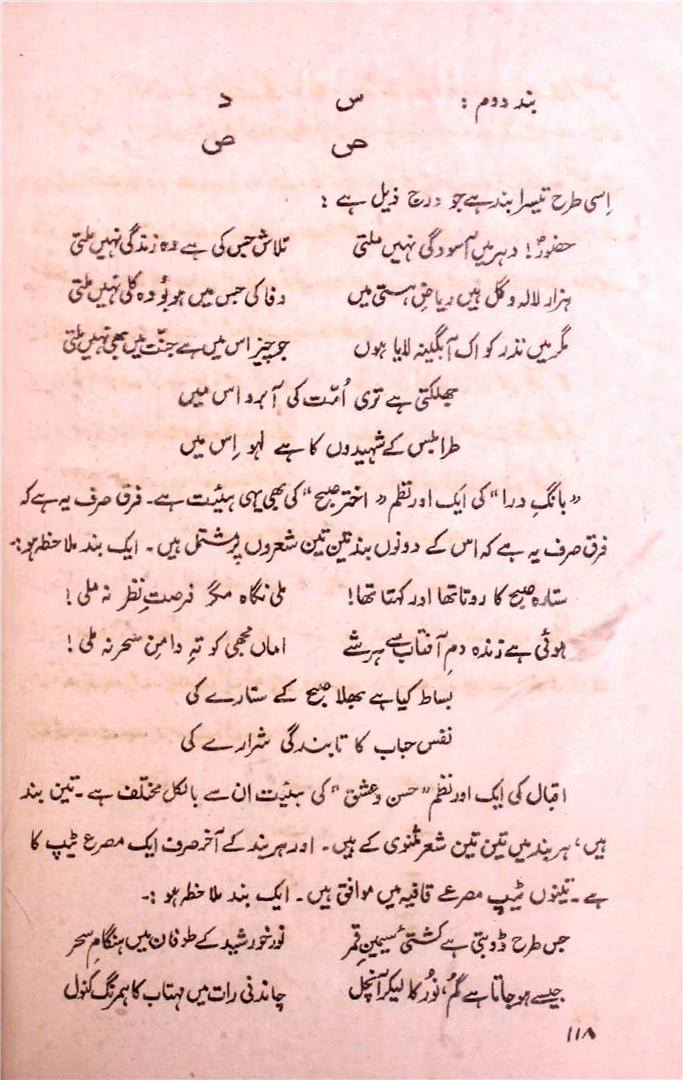 بند دوم : س د
ص ص
اِسی طرح تیسرا بند ہے جو درج ذیل ہے :
حضورؐ! دہر میں آسودگی نہیں ملتی تلاش جس کی ہے وہ زندگی نہیں ملتی
ہزار لالہ و گل ہیں ریاضِ ہستی میں وفا کی جس میں ہو بُو وہ کلی نہیں ملتی
مگر میں نذر کو اک آبگینہ لایا ہوں جو چیز اس میں ہے جنّت میں بھی نہیں ملتی
جھلکتی ہے تری اُمّت کی آبرو اس میں
طرابلس کے شہیدوں کا ہے لہو اِس میں
”بانگِ درا“ کی ایک اور نظم ”اختر صبح“ کی بھی یہی ہیئیت ہے۔ فرق صرف یہ ہے کہ
فرق صرف یہ ہے کہ اس کے دونوں بند تین تین شعروں پر مشتمل ہیں۔ ایک بند ملاحظہ ہو:۔
ستارہ صبح کا روتا تھا اور کہتا تھا! ملی نگاہ مگر فرصتِ نظر نہ ملی!
ہوئی ہے زندہ دمِ آفتاب سے ہر شے اماں مجھی کو تہِ دامنِ سحر نہ ملی!
بساط کیا ہے بھلا صبح کے ستارے کی
نفس حباب کا تابندگی شرارے کی
اقبال کی ایک اور نظم ”حسن و عشق“ کی ہیئیت ان سے بالکل مختلف ہے۔ تین بند
ہیں، ہر بند میں تین تین شعر مثنوی کے ہیں۔ اور ہر بند کے آخر صرف ایک مصرع ٹیپ کا
ہے۔ تینوں ٹیپ مصرعے قافیہ میں موافق ہیں۔ ایک بند ملاحظہ ہو :۔
جس طرح ڈوبتی ہے کشتئ سیمینِ قمر نورِ خورشید کے طوفان میں ہنگامِ سحر
جیسے ہو جاتا ہے گُم، نُور کا لیکر آنچل چاندنی رات میں مہتاب کا ہمرنگ کنول
۱۱۸